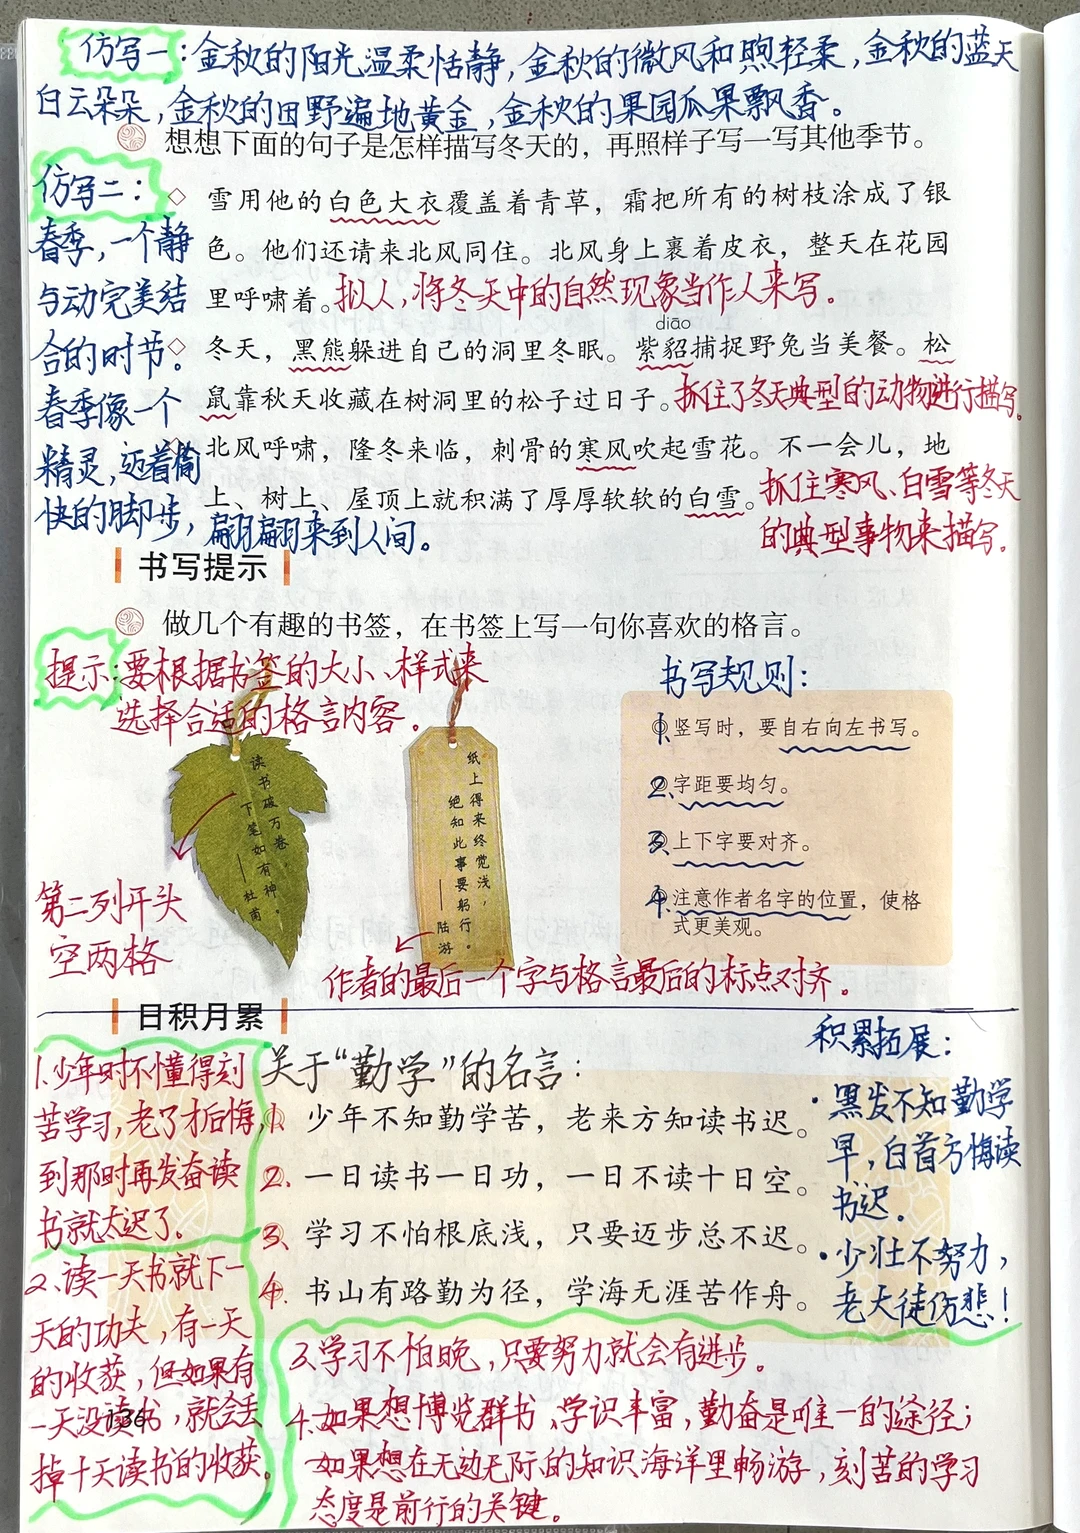 仿写一:金秋的阳光温柔恬静,金秋的微风和煦轻柔,金秋的蓝天
白云朵朵,金秋的田野遍地黄金,金秋的果园瓜果飘香。
想想下面的句子是怎样描写冬天的,再照样子写一写其他季节。
仿写二:
春季,一个静
与动完美结
合的时节。
春季像一个
精灵,迈着愉
快的脚步,翩翩来到人间。
◇ 雪用他的白色大衣覆盖着青草,霜把所有的树枝涂成了银
色。他们还请来北风同住。北风身上裹着皮衣,整天在花园
里呼啸着。拟人,将冬天中的自然现象当作人来写。
diāo
◇ 冬天,黑熊躲进自己的洞里冬眠。紫貂捕捉野兔当美餐。松
鼠靠秋天收藏在树洞里的松子过日子。抓住了冬天典型的动物进行描写。
◇ 北风呼啸,隆冬来临,刺骨的寒风吹起雪花。不一会儿,地
上、树上、屋顶上就积满了厚厚软软的白雪。抓住寒风、白雪等冬天
的典型事物来描写。
书写提示
做几个有趣的书签,在书签上写一句你喜欢的格言。
提示:要根据书签的大小、样式来
选择合适的格言内容。
读书破万卷,
下笔如有神。
——杜甫
第二列开头
空两格
纸上得来终觉浅,
绝知此事要躬行。
——陆游
作者的最后一个字与格言最后的标点对齐。
书写规则:
1、竖写时,要自右向左书写。
2、字距要均匀。
3、上下字要对齐。
4、注意作者名字的位置,使格
式更美观。
日积月累
关于“勤学”的名言:
1、少年不知勤学苦,老来方知读书迟。
2、一日读书一日功,一日不读十日空。
3、学习不怕根底浅,只要迈步总不迟。
4、书山有路勤为径,学海无涯苦作舟。
积累拓展:
·黑发不知勤学
早,白首方悔读
书迟。
·少壮不努力,
老大徒伤悲!
1.少年时不懂得刻
苦学习,老了才后悔,
到那时再发奋读
书就太迟了。
2.读一天书就下一
天的功夫,有一天
的收获,但如果有
一天没读书,就会丢
掉十天读书的收获。
3.学习不怕晚,只要努力就会有进步。
4.如果想博览群书、学识丰富,勤奋是唯一的途径;
如果想在无边无际的知识海洋里畅游,刻苦的学习
态度是前行的关键。
136